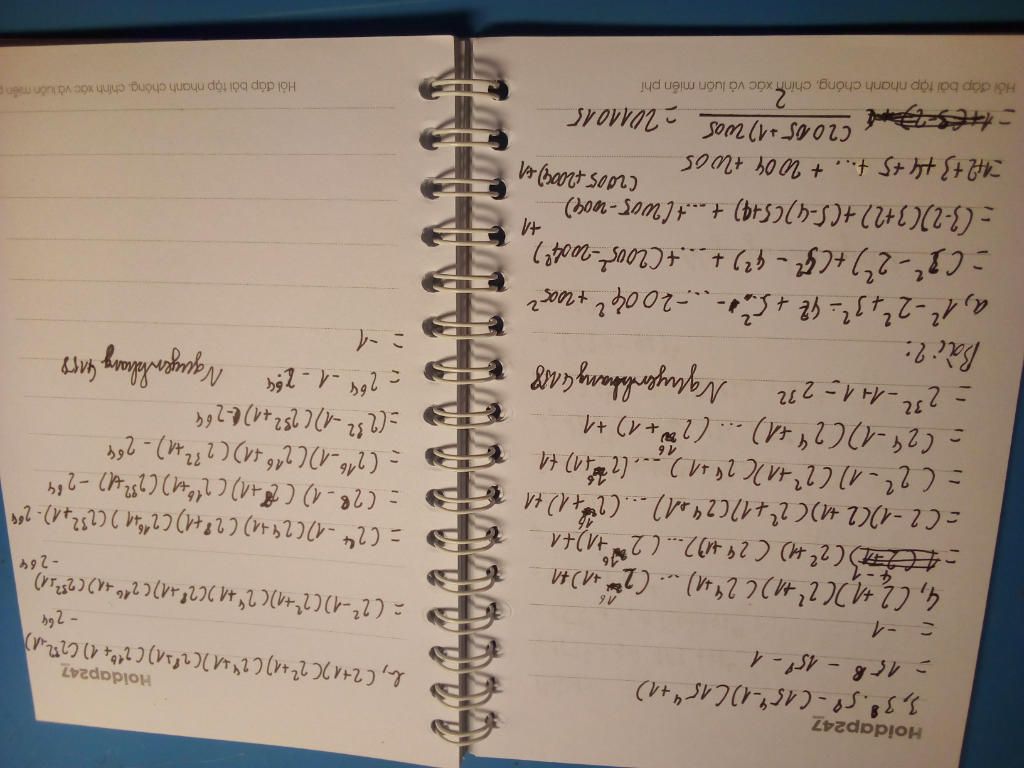 Hoidap247
3, 3⁸ . 5⁸ - (15⁴-1)(15⁴+1)
= 15⁸ - 15⁸ - 1
= -1
4, (2+1)(2²+1)(2⁴+1) ... (2¹⁶+1)+1
= (2²+1) (2⁴+1) ... (2¹⁶+1)+1
= (2-1)(2+1)(2²+1)(2⁴+1) ... (2¹⁶+1)+1
= (2²-1)(2²+1)(2⁴+1) ... (2¹⁶+1)+1
= (2⁴-1)(2⁴+1) ... (2¹⁶+1)+1
= 2³² -1+1 = 2³² Nguyenkhang4188
Bài 2:
a, 1² - 2² + 3² - 4² + 5² - ... - 2004² + 2005²
= (3² - 2²) + (5² - 4²) + ... + (2005² - 2004²) +1
= (3-2)(3+2) + (5-4)(5+4) + ... + (2005-2004)
(2005+2004)+1
= 1+2+3+4+5 + ... + 2004 + 2005
= (2005+1)2005 / 2 = 2011015
Hỏi đáp bài tập nhanh chóng, chính xác và luôn miễn phí
Hoidap247
b, (2+1)(2²+1)(2⁴+1)(2⁸+1)(2¹⁶+1)(2³²+1)
- 2⁶⁴
= (2²-1)(2²+1)(2⁴+1)(2⁸+1)(2¹⁶+1)(2³²+1)
- 2⁶⁴
= (2⁴-1)(2⁴+1)(2⁸+1)(2¹⁶+1)(2³²+1) - 2⁶⁴
= (2⁸-1)(2⁸+1)(2¹⁶+1)(2³²+1) - 2⁶⁴
= (2¹⁶-1)(2¹⁶+1)(2³²+1) - 2⁶⁴
= (2³²-1)(2³²+1) - 2⁶⁴
= 2⁶⁴ - 1 - 2⁶⁴ Nguyenkhang4188
= -1
Hỏi đáp bài tập nhanh chóng, chính xác và luôn miễn